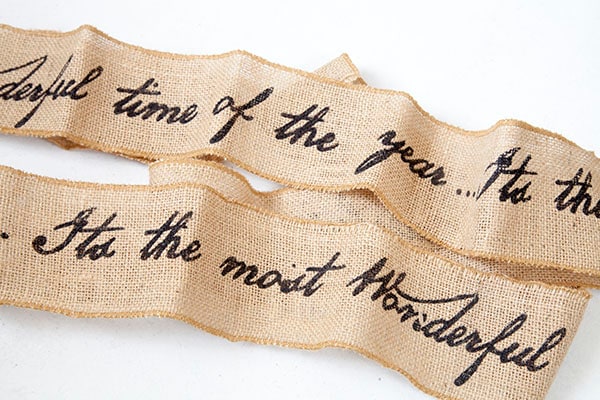 derful time of the year...Its the
. Its the most Wonderful